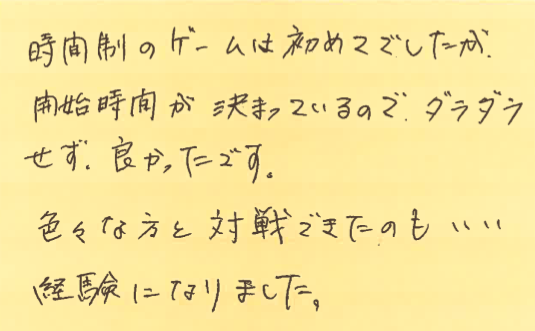 時間制のゲームは初めてでしたが、
開始時間が決まっているので、ダラダラ
せず、良かったです。
色々な方と対戦できたのもいい
経験になりました。